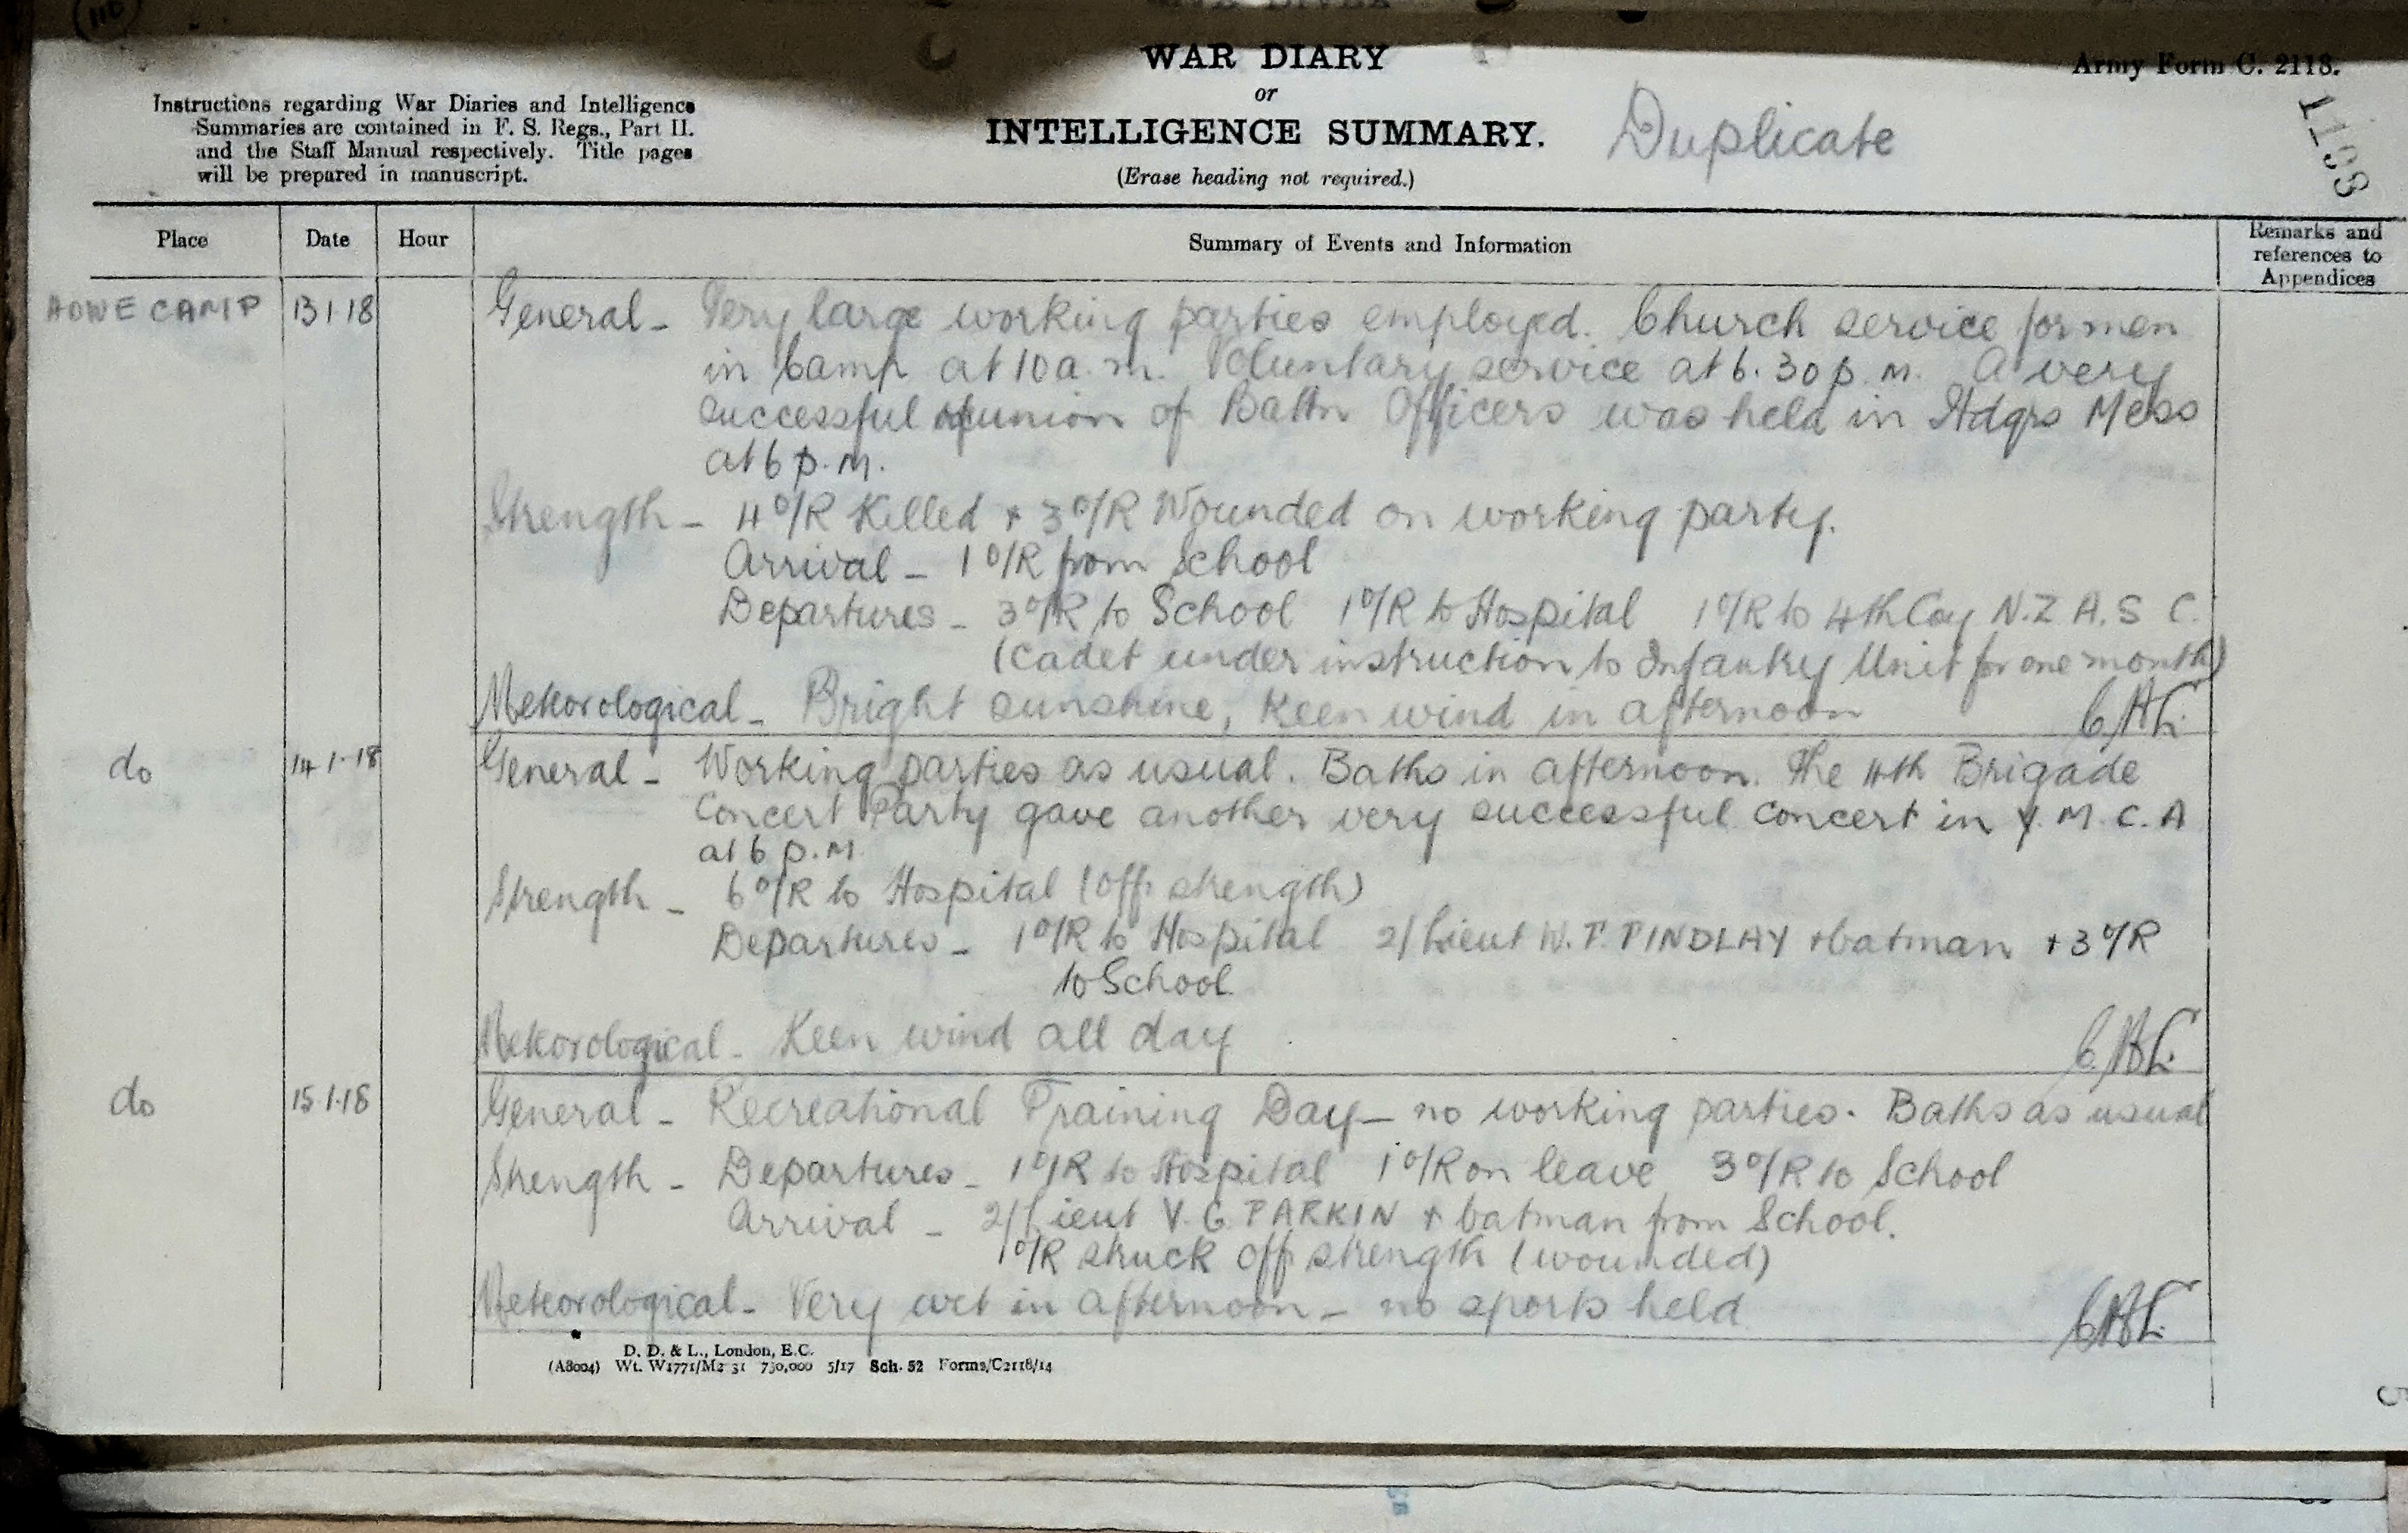 WAR DIARY
or
INTELLIGENCE SUMMARY.
(Erase heading not required.)
Duplicate
Army Form C. 2118.
Instructions regarding War Diaries and Intelligence
Summaries are contained in F. S. Regs., Part II.
and the Staff Manual respectively. Title pages
will be prepared in manuscript.
Place Date Hour Summary of Events and Information Remarks and
references to
Appendices
HOWE CAMP 13 1 18 General - Very large working parties employed. Church service for men
in Camp at 10 a.m. Voluntary service at 6.30 p.m. A very
successful reunion of Battn Officers was held in Hdqrs Mess
at 6 p.m.
Strength - 4 O/R Killed + 3 O/R Wounded on working party.
Arrival - 1 O/R from School
Departures - 3 O/R to School 1 O/R to Hospital 1 O/R to 4th Coy N.Z.A.S.C.
(Cadet under instruction to Infantry Unit for one month)
Meteorological - Bright sunshine, Keen wind in afternoon
do 14-1-18 General - Working parties as usual. Baths in afternoon. The 4th Brigade
Concert Party gave another very successful concert in Y.M.C.A
at 6 p.m.
Strength - 6 O/R to Hospital (off strength)
Departures - 1 O/R to Hospital 2/Lieut W.F. FINDLAY + batman + 3 O/R
to School
Meteorological - Keen wind all day
do 15.1.18 General - Recreational Training Day - no working parties. Baths as usual
Strength - Departures - 1 O/R to Hospital 1 O/R on leave 3 O/R to School
Arrival - 2/Lieut V.G. PARKIN + batman from School.
1 O/R struck off strength (wounded)
Meteorological - Very wet in afternoon - no sports held
D. D. & L., London, E.C.
(A8004) Wt. W1771/M2 31 750,000 5/17 Sch. 52 Forms/C2118/14